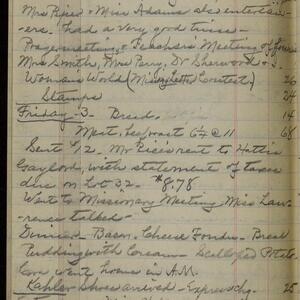 Mrs Piper & Miss Adams also entertain-
ers. Had a very good time -
Prayermeeting & Teachers Meeting after
Mrs Smith, Mrs Perry, Dr Sherwood & I.
Woman's World (Missing Letter Contest.) 26
Stamps 24
Friday - 3 - Bread 14
Meat, 6¼ @ 11 68
Sent Mr Rice's rent to Hattie
Gaylord, with statement of taxes
due on Lot 32 - $8.78
Went to Missionary Meeting Miss Law-
rence talked -
Dinner - Bacon. Cheese Fondu - Bread
Pudding with Cream - Scalloped Potato -
Cora went home in A.M.
Kahler Shoes arrived - Expressage 25